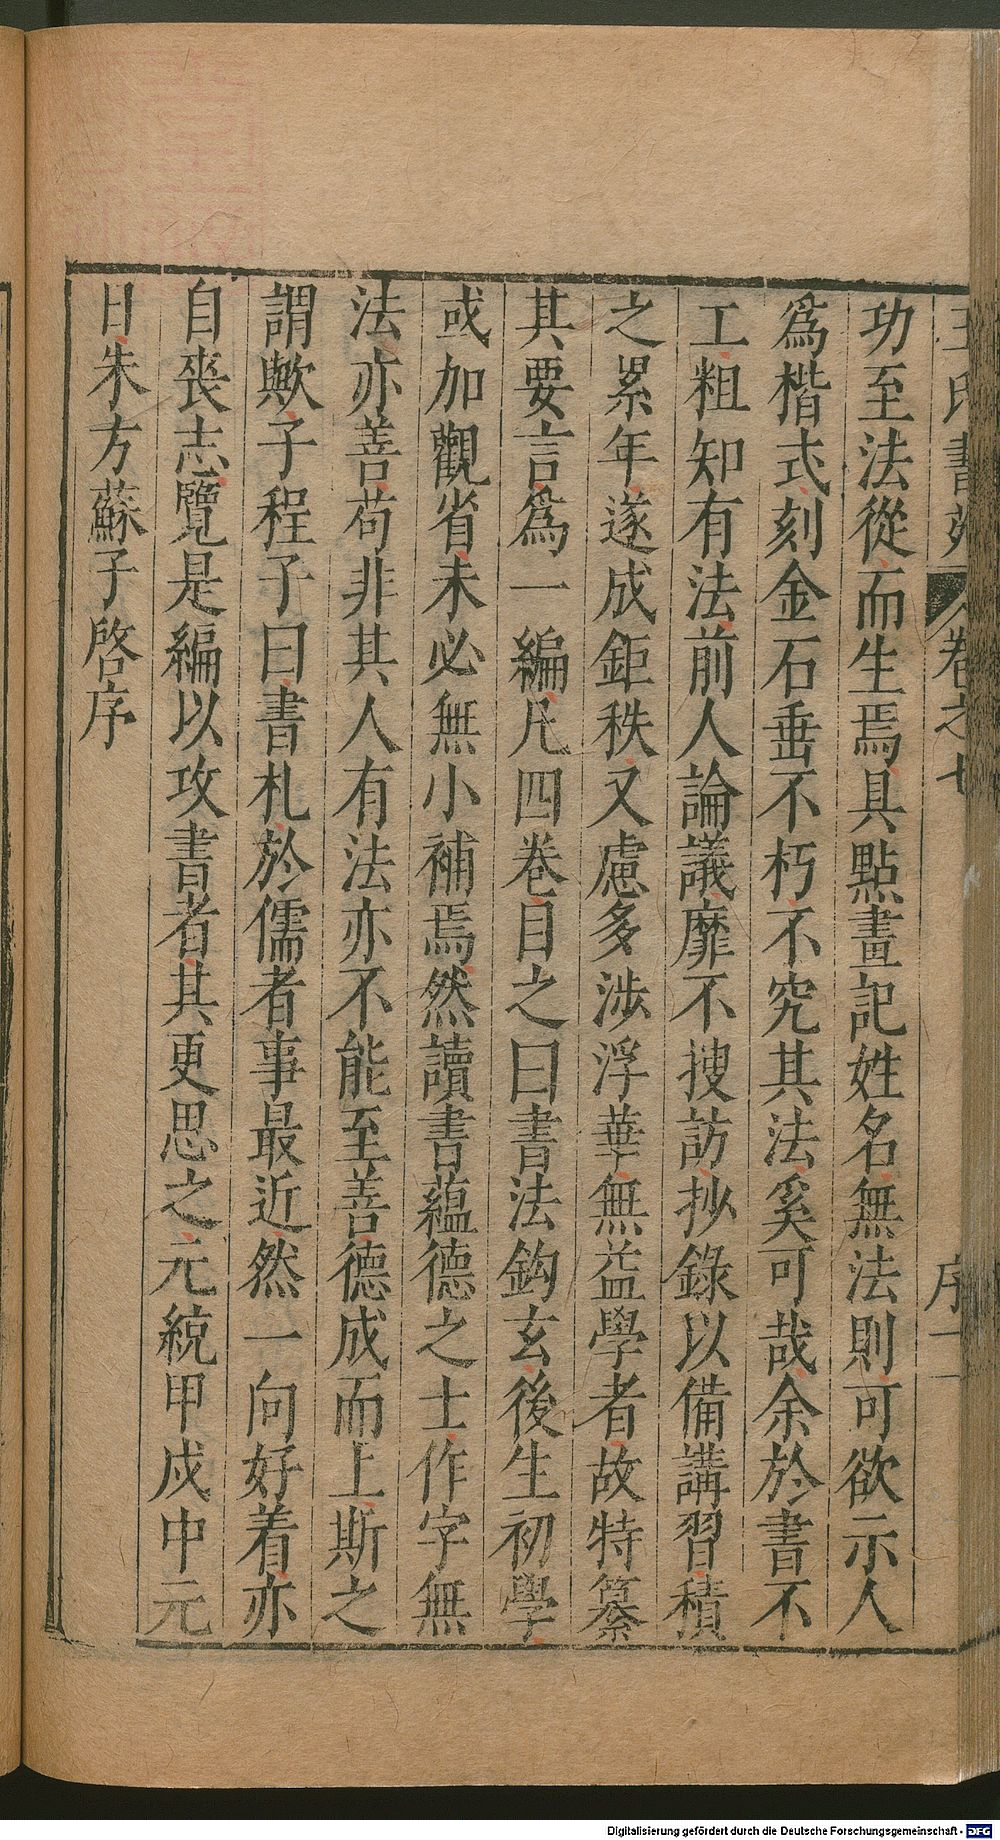 王氏書苑 卷之七 序一
功至法從而生焉具點畫記姓名無法則可欲示人
爲楷式刻金石垂不朽不究其法奚可哉余於書不
工粗知有法前人論議靡不搜訪抄錄以備講習積
之累年遂成鉅秩又慮多涉浮華無益學者故特纂
其要言爲一編凡四卷目之曰書法鈎玄後生初學
或加觀省未必無小補焉然讀書蘊德之士作字無
法亦善苟非其人有法亦不能至善德成而上斯之
謂歟子程子曰書札於儒者事最近然一向好着亦
自喪志覽是編以攻書者其更思之元統甲戌中元
日朱方蘇子啓序
Digitalisierung gefördert durch die Deutsche Forschungsgemeinschaft - DFG